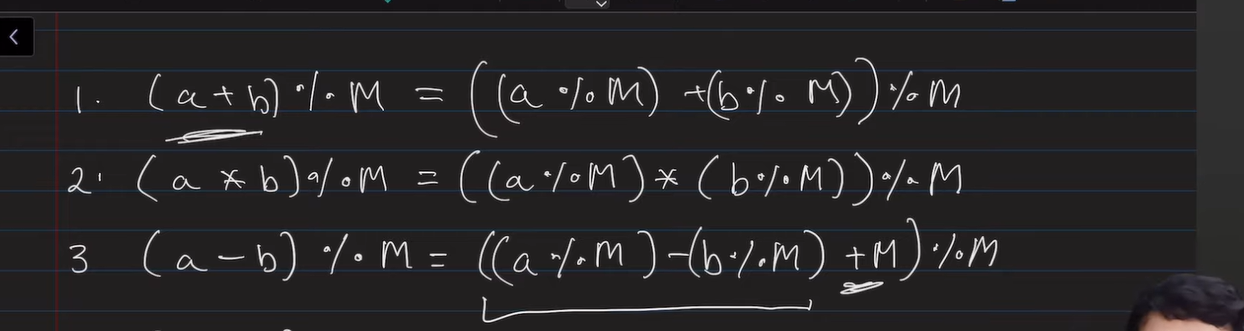 1. (a + b) % M = ((a % M) + (b % M)) % M
2. (a * b) % M = ((a % M) * (b % M)) % M
3 (a - b) % M = ((a % M) - (b % M) + M) % M